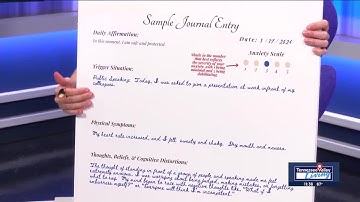 Sample Journal Entry
Daily Affirmation:
Date: 1/17/2024
In this moment, I am safe and protected
Anxiety Scale
Shade in the number
that best reflects
the severity of your
anxiety, with 1 being
minimal and 5 being
debilitating.
1 2 3 4 5
Trigger Situation:
Public Speaking: Today, I was asked to give a presentation at work infront of my
colleagues.
Physical Symptoms:
My heart rate increased, and I felt sweaty and shaky. Dry mouth and nausea.
Thoughts, Beliefs, & Cognitive Distortions:
The thought of standing in front of a group of people and speaking made me feel
extremely anxious. I was worrying about being judged, making mistakes, or forgetting
what to say. My mind began to race with negative thoughts like, "What if I
embarrass myself?" or "Everyone will think I'm incompetent."
Tennessee Valley
Living
11:38 67°